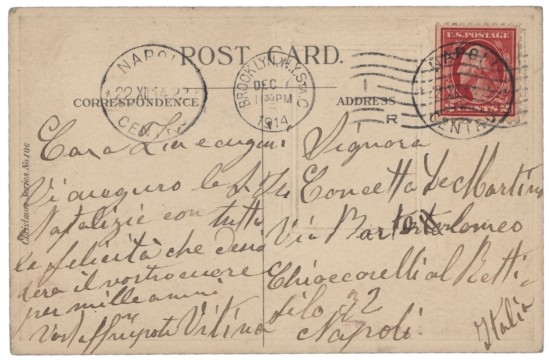 POST CARD.
CORRESPONDENCE
ADDRESS
U.S. POSTAGE
CENTS
NAPOLI
22 XII 14
CENTRO
BROOKLYN, N.Y. STA. C
DEC 1
1 30 PM
1914
R
NAPOLI
CENTRO
Christmas Series No 106
Cara Zia e cugini
Vi auguro le S. Fe
Natalizie con tutta
la felicità che desi
dera il vostro cuore
per mille anni
Vostra nipote Vitina
Signora
Concetta De Martino
Via Bartolomeo
Chioccarelli al Retti
filo 32
Napoli
Italia